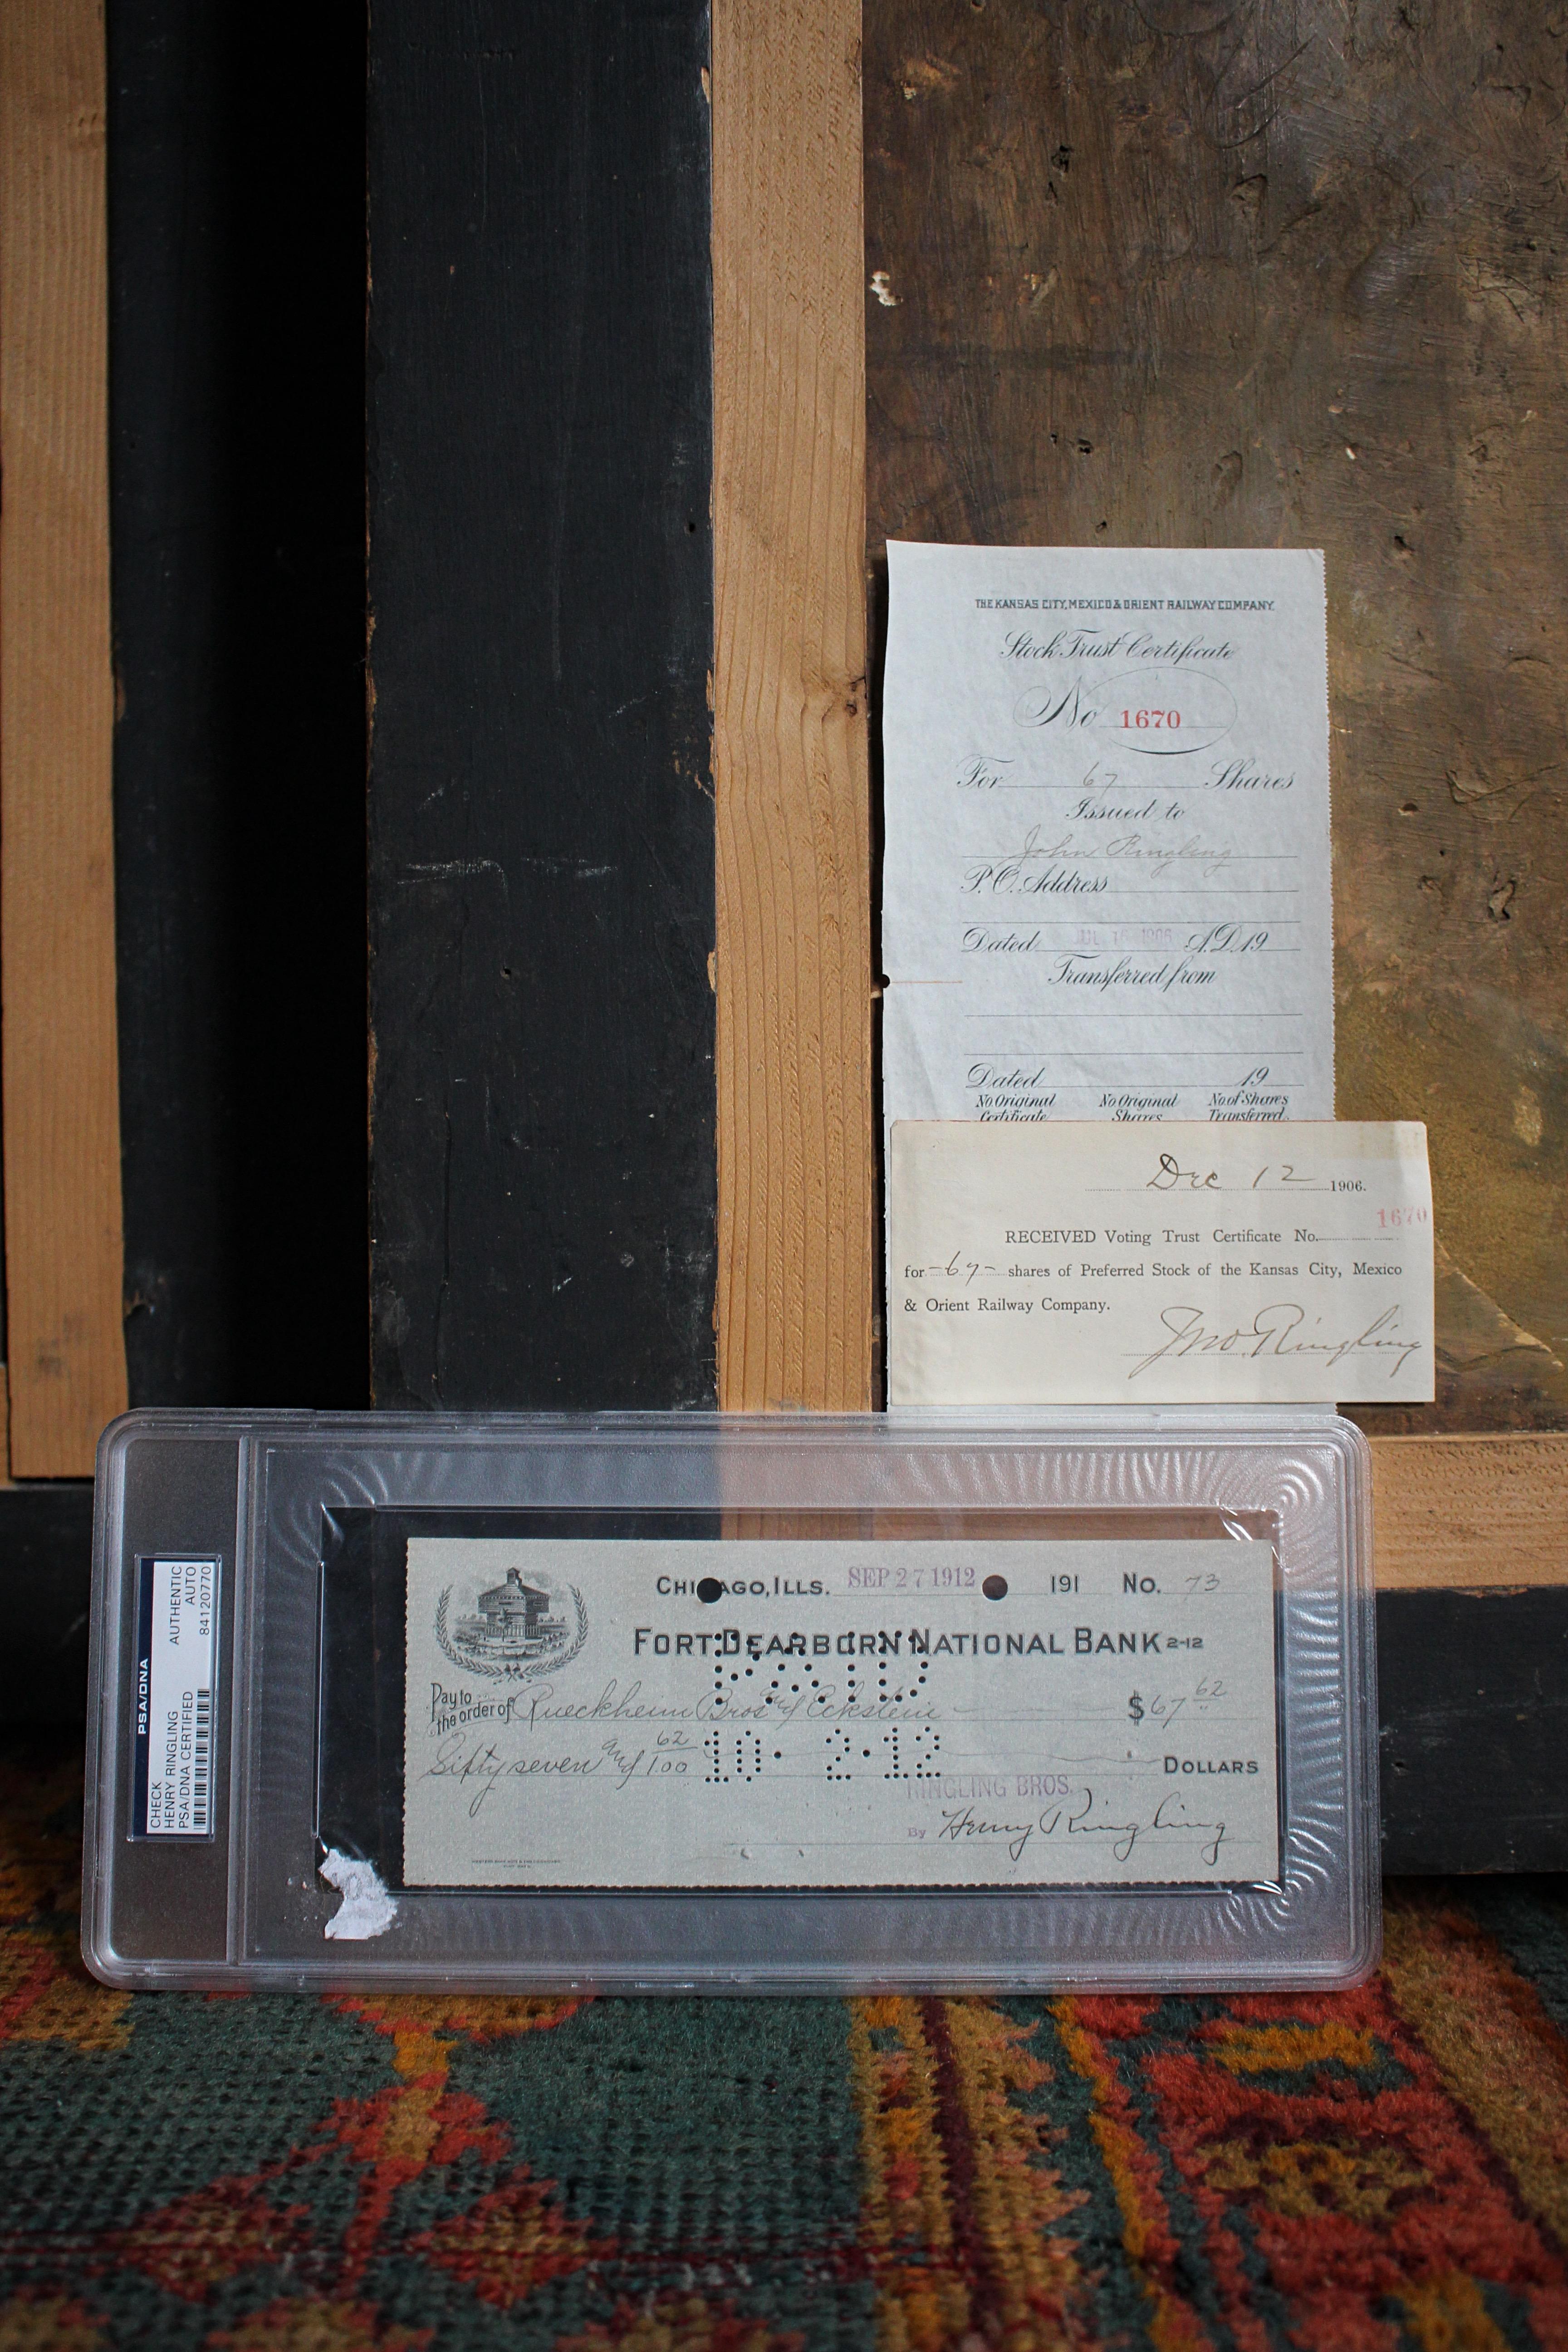 THE KANSAS CITY, MEXICO & ORIENT RAILWAY COMPANY.
Stock Trust Certificate
No 1670
For 67 Shares
Issued to
John Ringling
P.O. Address
Dated JUL 16 1906 A.D. 19
Transferred from
Dated 19
No Original Certificate
No Original Shares
No of Shares Transferred
Dec 12 1906.
1670
RECEIVED Voting Trust Certificate No.
for -67- shares of Preferred Stock of the Kansas City, Mexico
& Orient Railway Company.
Jno. Ringling
PSA/DNA
CHECK AUTHENTIC
HENRY RINGLING AUTO
PSA/DNA CERTIFIED 84120770
CHICAGO, ILLS. SEP 27 1912 191 No. 73
FORT DEARBORN NATIONAL BANK 2-12
Pay to the order of Rueckheim Bros and Eckstein $67 62
Sifty seven and 62/100 DOLLARS
PAID
10·2·12
RINGLING BROS.
By Henry Ringling